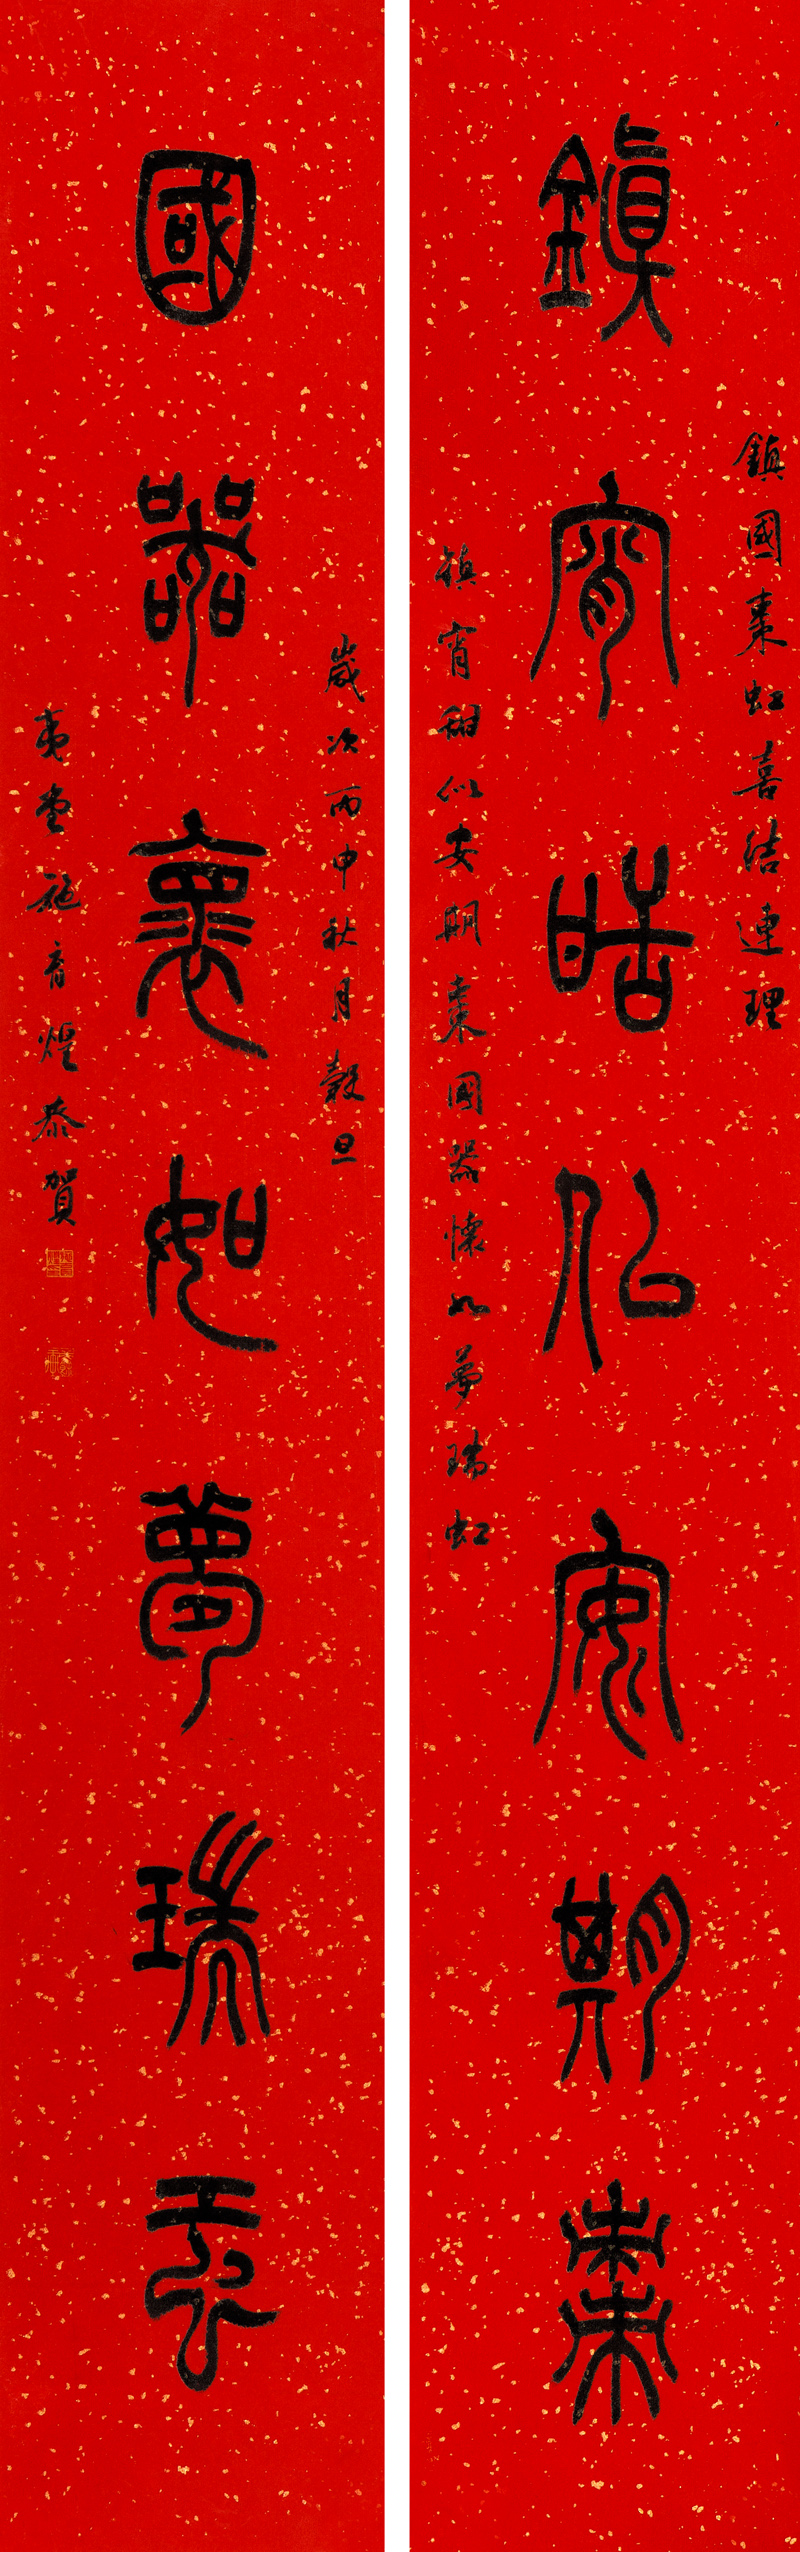 鎮國棗虹喜結連理
鎮宵甜似安期棗
鎮宵甜似安期棗國器懷如夢瑞虹
歲次丙申秋月穀旦
國器褱如夢瑞虹
施育煌恭賀